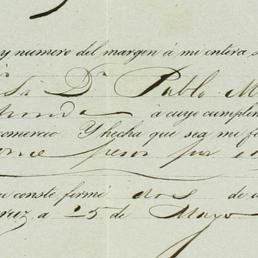 y numero del margen á mi entera s
D.n Pablo M
á cuyo cumplim
comercio. Y hecha que sea mi f
pesos por e
conste firmé dos de u
ruz, a 25 de Mayo